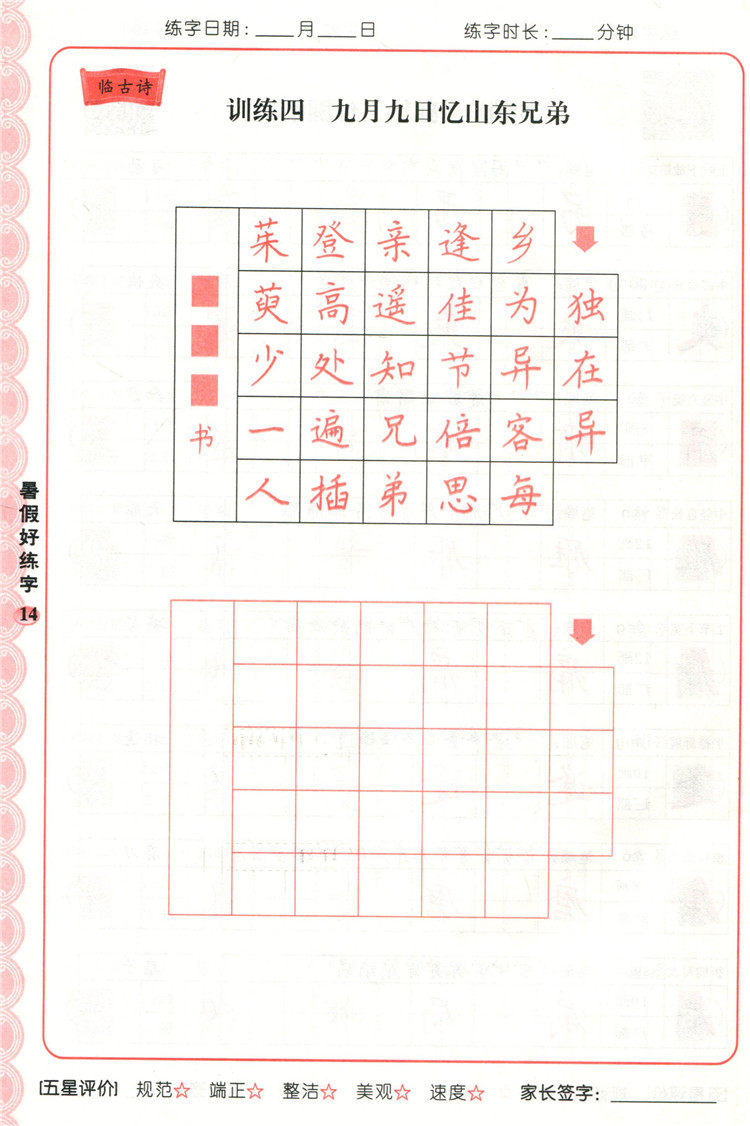 练字日期：____月____日 练字时长：____分钟
临古诗
训练四 九月九日忆山东兄弟
独在异
乡为异客每
逢佳节倍思
亲遥知兄弟
登高处遍插
茱萸少一人
书
暑假好练字
14
[五星评价] 规范☆ 端正☆ 整洁☆ 美观☆ 速度☆ 家长签字：________